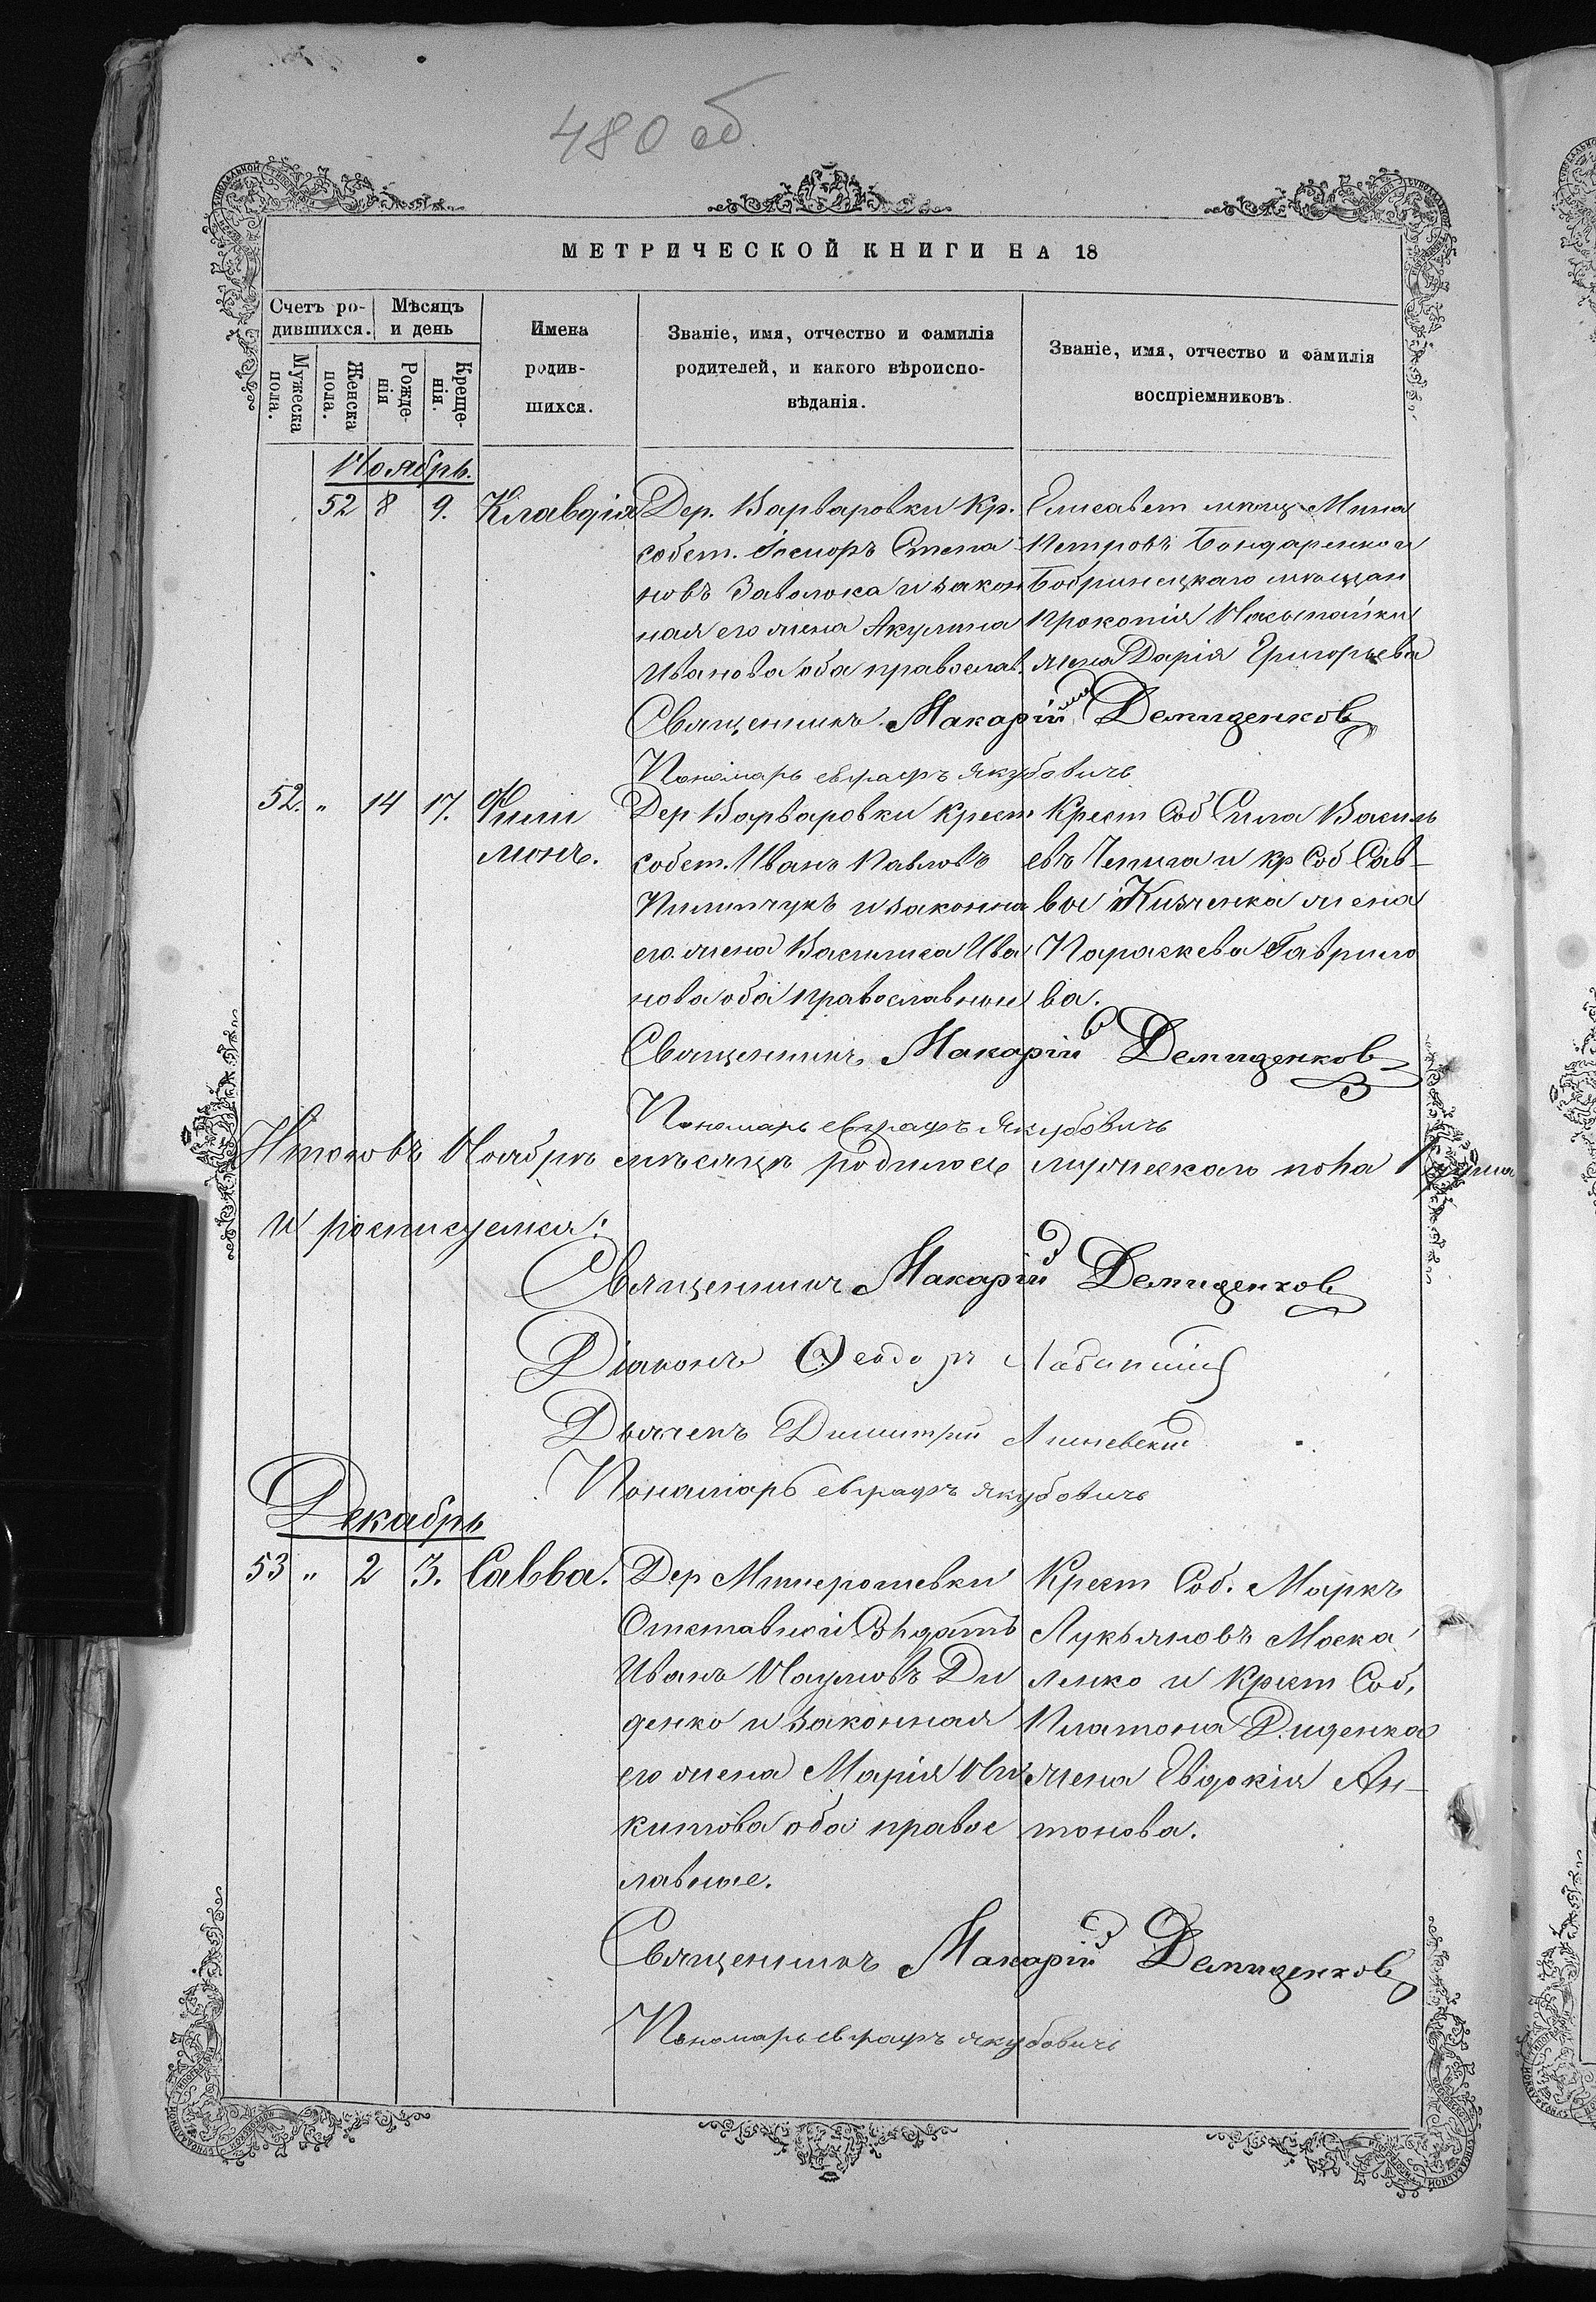 480 об
МЕТРИЧЕСКОЙ КНИГИ НА 18
Счетъ ро-
дившихся.
Мужеска
пола.
Женска
пола.
Мѣсяцъ
и день
Рожде-
нія
Креще-
нія.
Имена
родив-
шихся.
Званіе, имя, отчество и фамилія
родителей, и какого вѣроиспо-
вѣданія.
Званіе, имя, отчество и фамилія
воспріемниковъ.
Ноябрь.
52 8 9. Клавдія
Дер. Варваровки Кр.
собст. Степа
новъ Заволока и закон
ная его жена Акулина
Иванова оба православ.
Елисавет мѣщ. Мина
Петровъ Бондаренко и
Бобринецкаго мѣщан
Прокопія
жена Дарія Григорьева
Священникъ Макарій Демиденков
Пономарь Евграфъ Якубовичъ
52. " 14 17. Фили
монъ.
Дер Варваровки Крест
собст. Иванъ Павловъ
Пилипчукъ и законна
его жена Василиса Ива
нова оба православные
Крест Соб Сила Василь
евъ Чепига и кр Соб Сав-
вы жена
Параскева Гаврило
ва.
Священникъ Макарій Демиденков
Пономарь Евграфъ Якубовичъ
Итого въ Ноябрѣ мѣсяцѣ родилось мужескаго пола
и
Священникъ Макарій Демиденков
Діаконъ Ѳеодоръ
Дьячекъ Димитрій
Пономарь Евграфъ Якубовичъ
Декабрь
53 " 2 3. Савва.
Дер
Отставной
Иванъ Наумовъ Ди
денко и законная
его жена Марія Ни
китова оба правос
лавные.
Крест Соб. Маркъ
Лукьяновъ Моска
ленко и Крест Соб.
Платона Диденка
жена Евдокія Ан-
тонова.
Священникъ Макарій Демиденков
Пономарь Евграфъ Якубовичъ